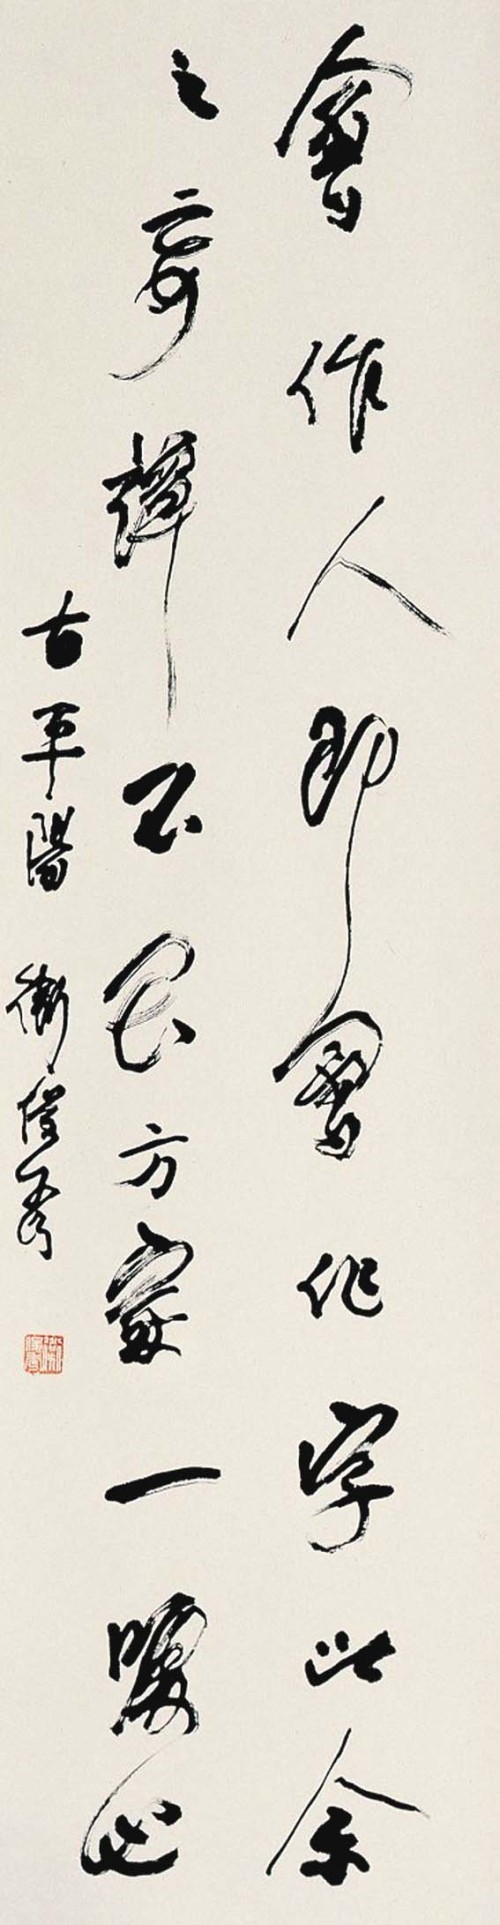 會作人即會作字此余
之妄譚不足方家一噱也
古平陽衛俊秀